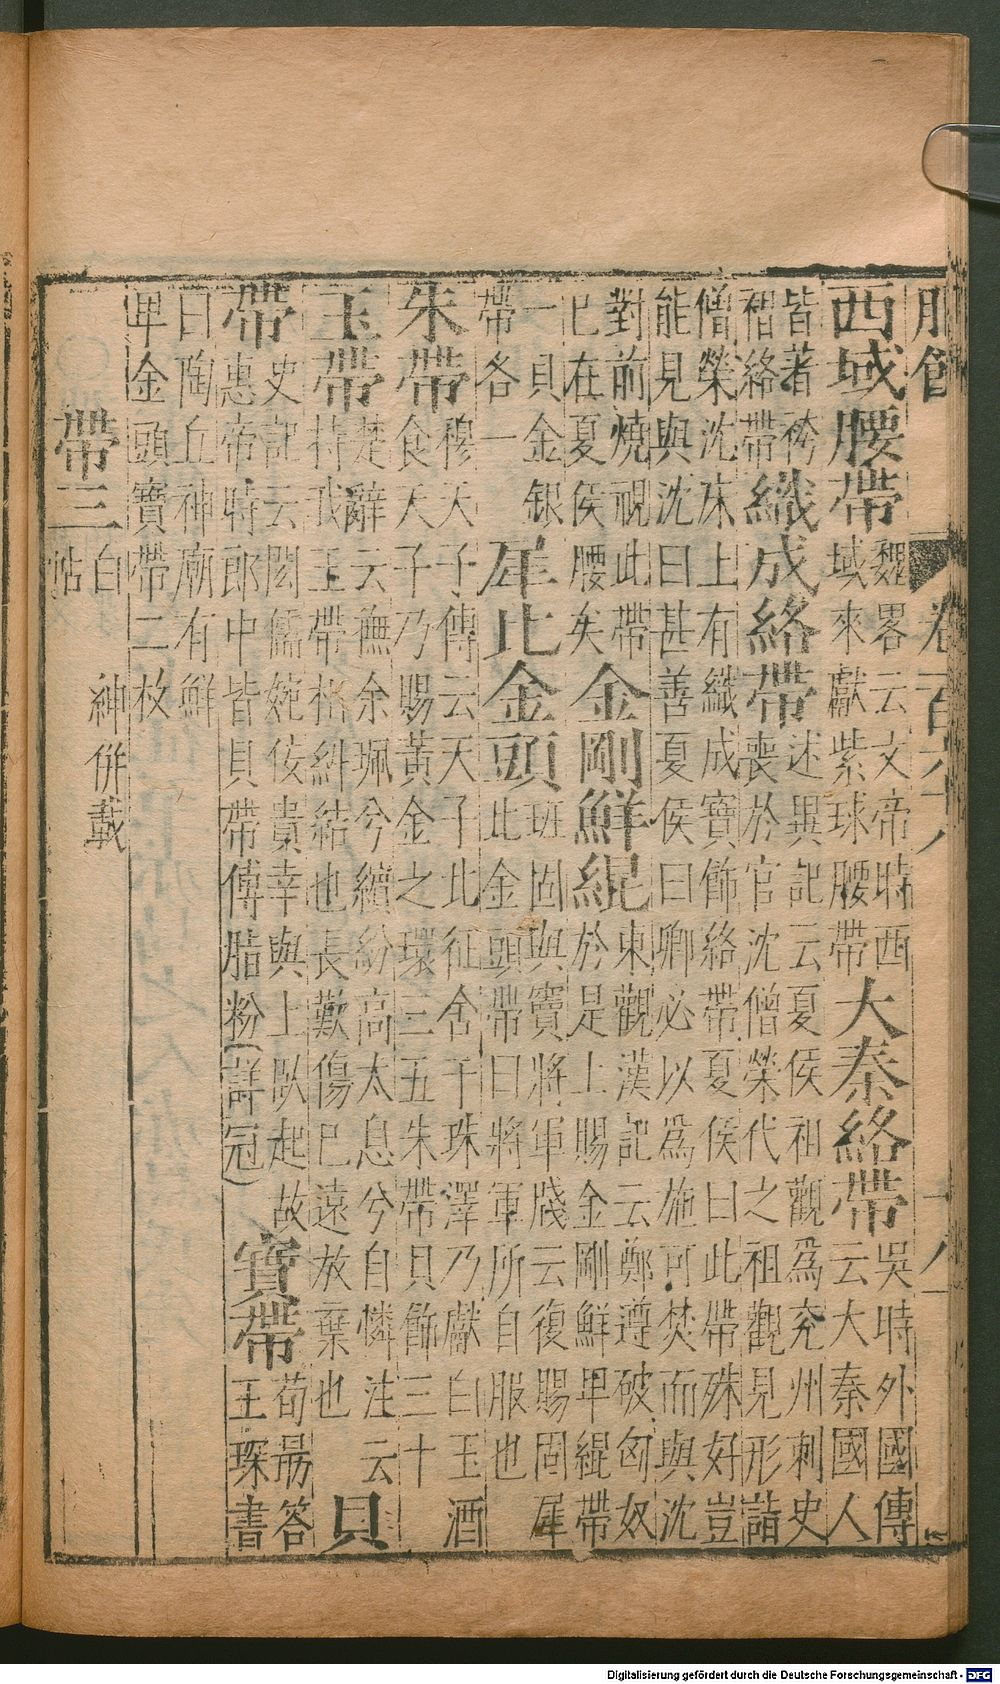 服飾 卷一百六十八 十八
西域腰帶 魏畧云文帝時西
域來獻紫球腰帶 大秦絡帶 吳時外國傳
云大秦國人
皆著袴
褶絡帶 織成絡帶 述異記云夏侯祖觀爲兖州刺史
喪於官沈僧榮代之祖觀見形詣
僧榮沈床上有織成寶飾絡帶夏侯曰此帶殊好豈
能見與沈曰甚善夏侯曰卿必以爲施可焚而與沈
對前燒視此帶
已在夏侯腰矣 金剛鮮緄 東觀漢記云鄭遵破匈奴
於是上賜金剛鮮卑緄帶
一具金銀
帶各一 犀比金頭 班固與竇將軍牋云復賜固犀
比金頭帶曰將軍所自服也
朱帶 穆天子傳云天子北征舍于珠澤乃獻白玉酒
食天子乃賜黃金之環三五朱帶貝飾三十
玉帶 楚辭云撫余珮兮繽紛高太息兮自憐注云
持我玉帶相糾結也長歎傷已遠放棄也 貝
帶 史記云閎儒婉佞貴幸與上臥起故
惠帝時郎中皆貝帶傅脂粉(詳冠) 寶帶 荀朂答
王琛書
曰陶丘神廟有鮮
卑金頭寶帶二枚
帶三 白 紳併載
帖
Digitalisierung gefördert durch die Deutsche Forschungsgemeinschaft - DFG